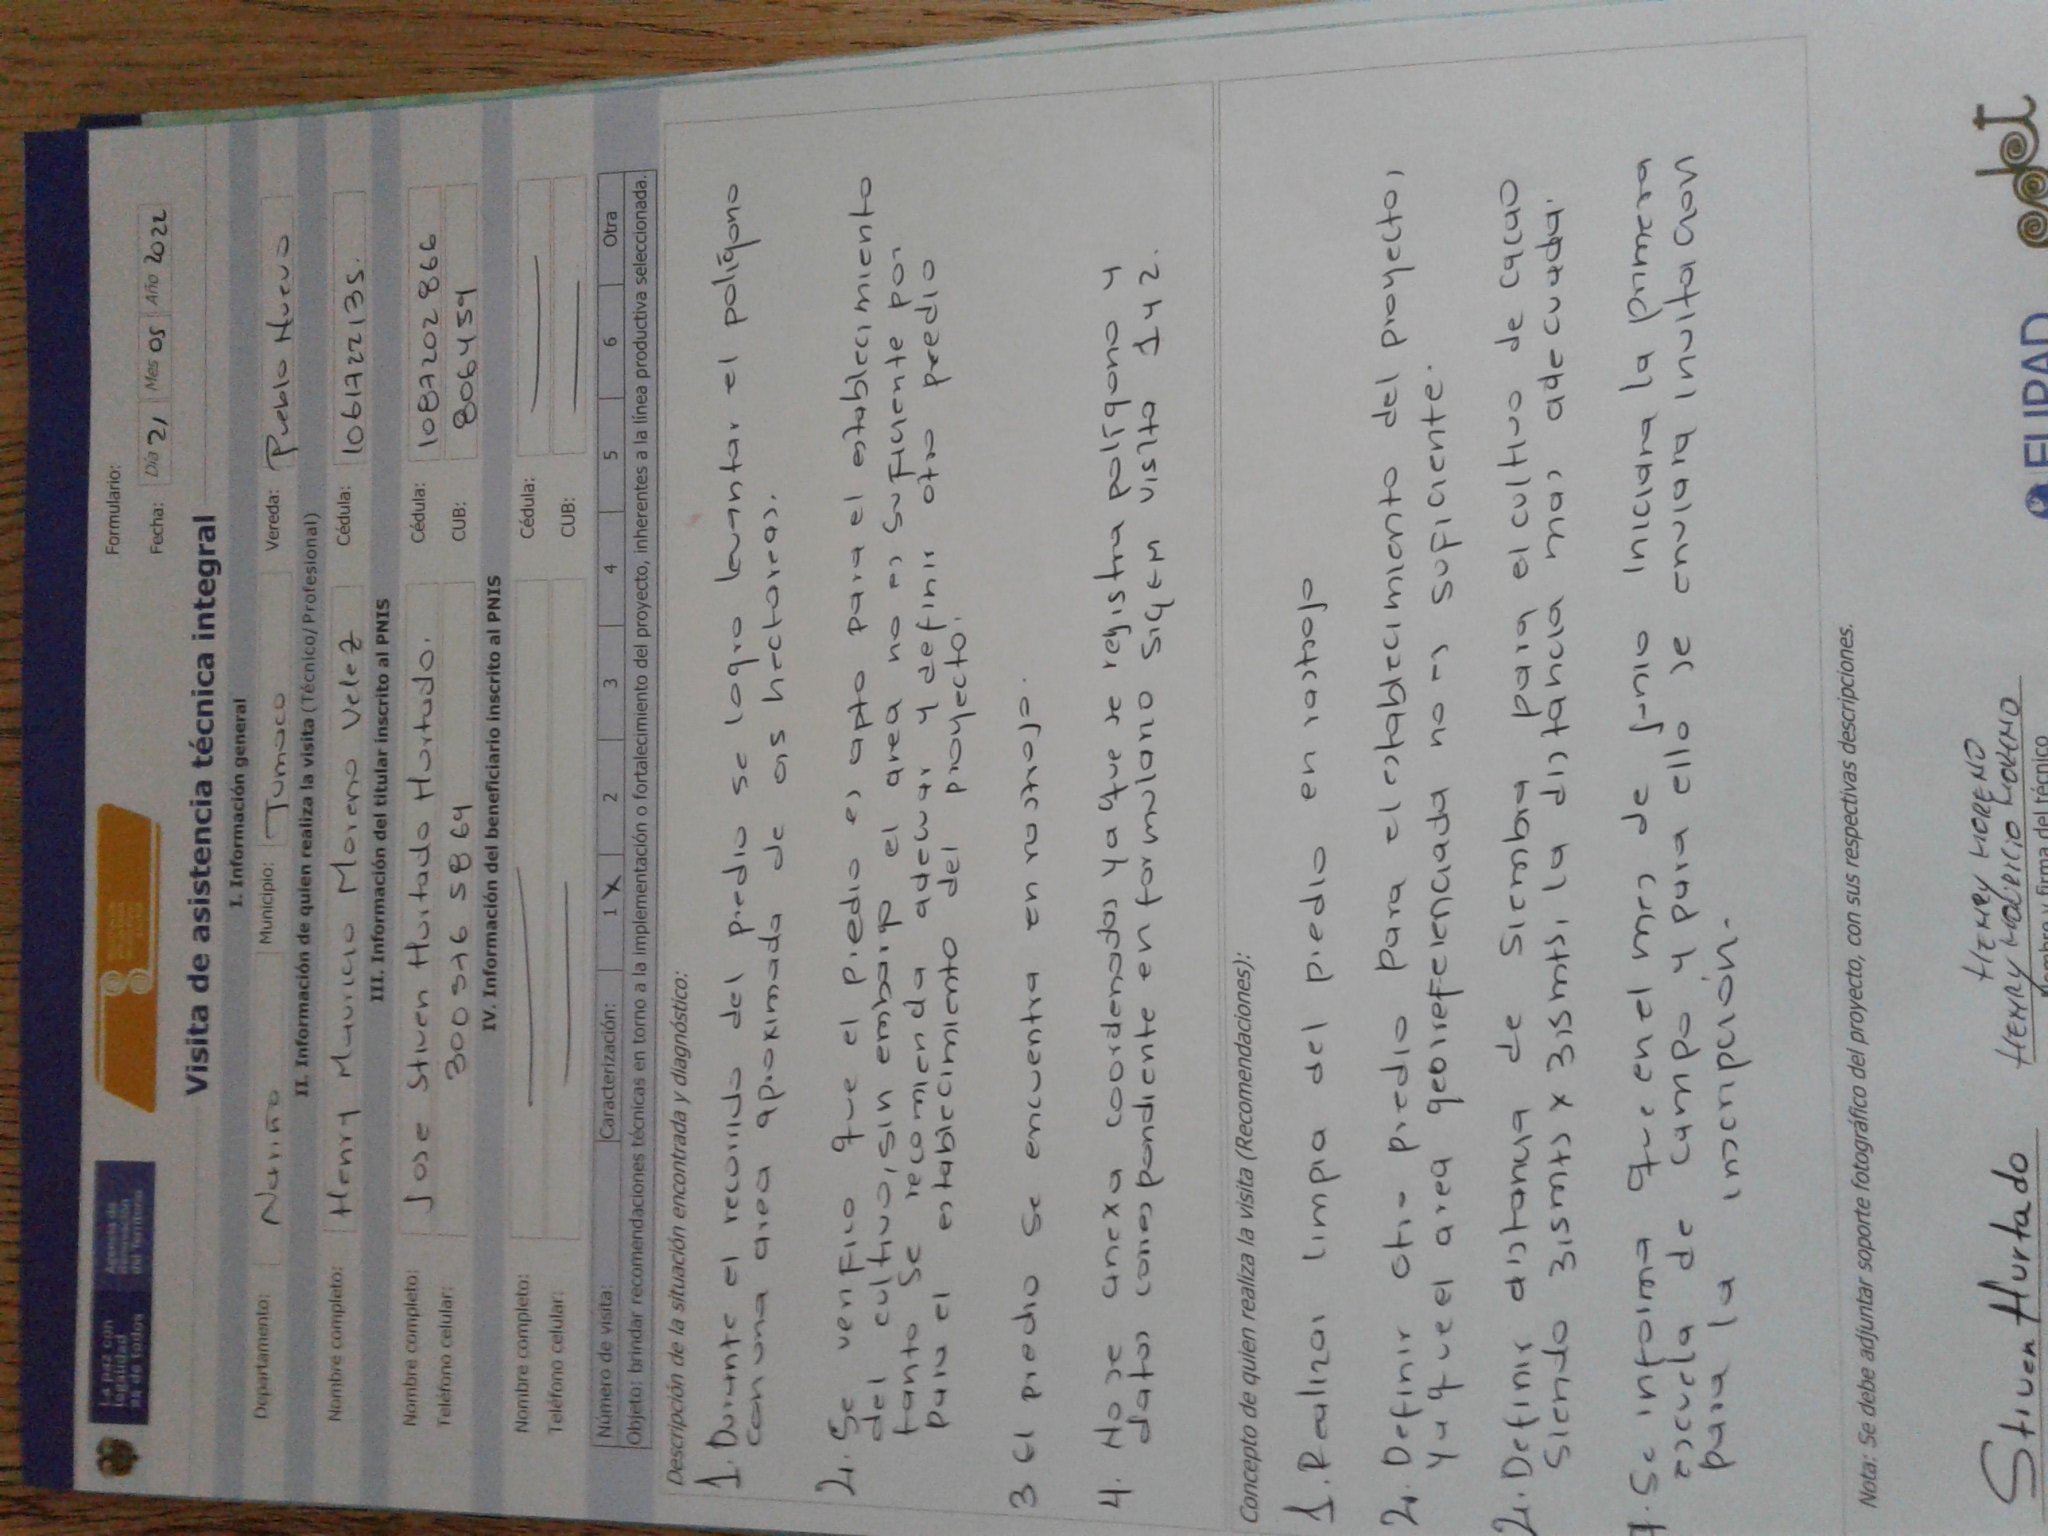 La paz con legalidad es de todos
Agencia de Renovación del Territorio
Formulario:
Fecha: Día 21 Mes 05 Año 2022
Visita de asistencia técnica integral
I. Información general
Departamento: Nariño Municipio: Tumaco Vereda: Pueblo Nuevo
II. Información de quien realiza la visita (Técnico/Profesional)
Nombre completo: Henry Mauricio Moreno Velez Cédula: 1061722135.
III. Información del titular inscrito al PNIS
Nombre completo: Jose Stiven Hurtado Hurtado. Cédula: 1087202866
Teléfono celular: 3003765864 CUB: 806459
IV. Información del beneficiario inscrito al PNIS
Nombre completo: Cédula:
Teléfono celular: CUB:
Número de visita: Caracterización: 1 X 2 3 4 5 6 Otra
Objeto: brindar recomendaciones técnicas en torno a la implementación o fortalecimiento del proyecto, inherentes a la línea productiva seleccionada.
Descripción de la situación encontrada y diagnóstico:
1. Durante el recorrido del predio se logro levantar el polígono
con una area aproximada de hectareas.
2. Se verifico que el predio es apto para el establecimiento
del cultivo, sin embargo el area no es suficiente por
tanto se recomienda adecuar y definir otro predio
para el establecimiento del proyecto.
3 El predio se encuentra en rastrojo.
4. No se anexa coordenadas ya que se registra polígono y
datos correspondiente en formulario SIGEM visita 1 y 2.
Concepto de quien realiza la visita (Recomendaciones):
1. Realizar limpia del predio en rastrojo
2. Definir otro predio para el establecimiento del proyecto,
ya que el area georeferenciada no es suficiente.
2. Definir distancia de siembra para el cultivo de cacao
siendo x la distancia mas adecuada.
Se informa que en el mes de Junio iniciara la primera
escuela de campo y para ello se enviara invitacion
para la inscripción.
Nota: Se debe adjuntar soporte fotográfico del proyecto, con sus respectivas descripciones.
Stiven Hurtado
HENRY MORENO
HENRY MAURICIO MORENO
Nombre y firma del técnico
FUPAD
pdet